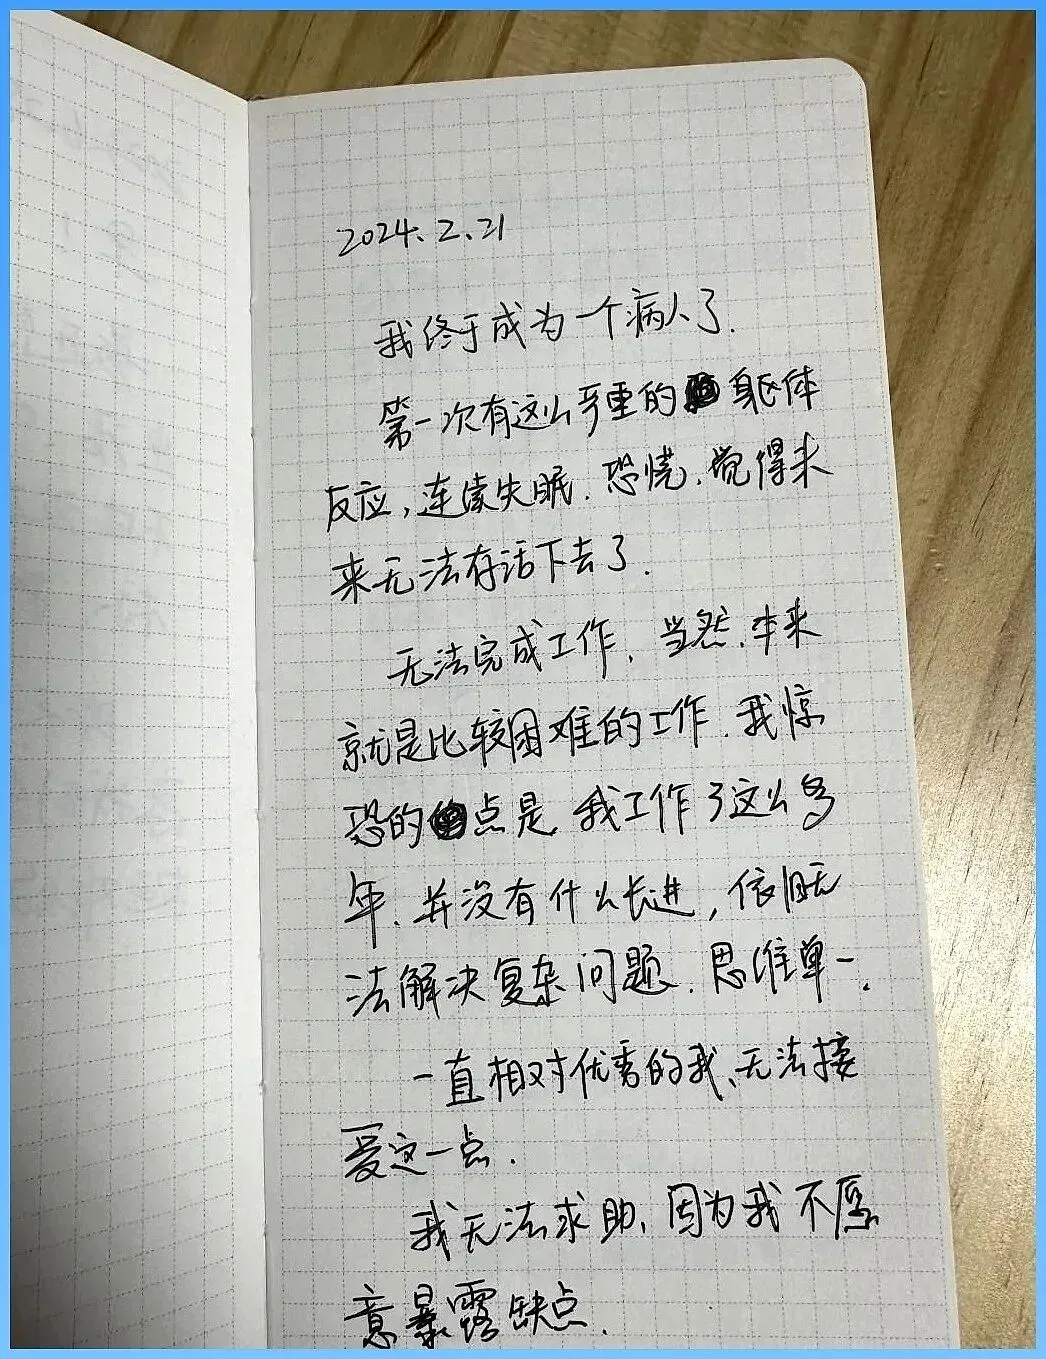 2024.2.21
我终于成为一个病人了.
第一次有这么严重的躯体
反应,连续失眠.恐慌.觉得未
来无法存活下去了.
无法完成工作.当然.本来
就是比较困难的工作.我惊
恐的点是.我工作了这么多
年.并没有什么长进,依旧无
法解决复杂问题.思维单一.
一直相对优秀的我、无法接
受这一点.
我无法求助、因为我不愿
意暴露缺点.